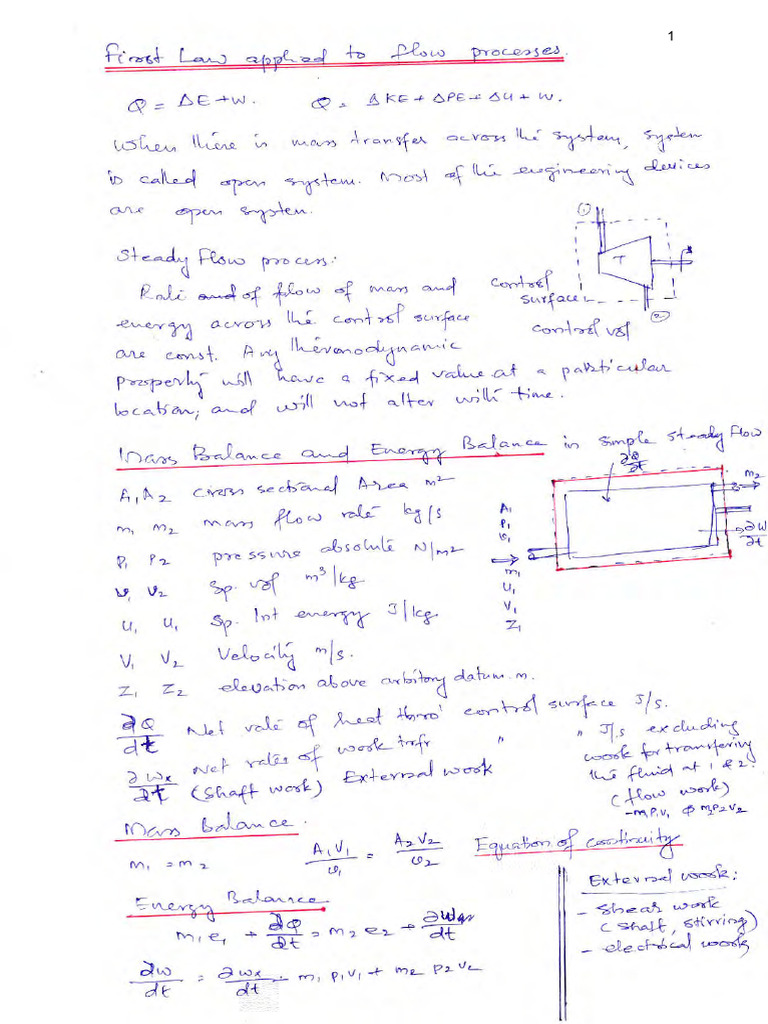 1
First Law applied to flow processes.
Q = ΔE + W. Q = ΔKE + ΔPE + ΔU + W.
When there is mass transfer across the system, system
is called open system. Most of the engineering devices
are open system.
①
T
②
Steady Flow process:
Rate and of flow of mass and
energy across the control surface
are const. Any thermodynamic
property will have a fixed value at a particular
location, and will not alter with time.
control
surface
control vol
Mass Balance and Energy Balance in simple steady Flow
A1 A2 cross sectional Area m²
m1 m2 mass flow rate kg/s
p1 p2 pressure absolute N/m²
v1 v2 Sp. vol m³/kg
u1 u1 Sp. Int energy J/kg
V1 V2 Velocity m/s.
Z1 Z2 elevation above arbitory datum. m.
∂Q/dt
m2
A1
P1
v1
m1
U1
V1
Z1
∂W/∂t
∂Q/dt Net rate of heat thro' control surface J/s.
∂Wx/∂t Net rates of work trfr " " J/s excluding
(Shaft work) External work
work for transfering
the fluid at 1 & 2.
(flow work)
-m1P1V1 & m2P2V2
Mass Balance.
m1 = m2 A1V1/v1 = A2V2/v2 Equation of continuity
Energy Balance
m1e1 + ∂Q/∂t = m2e2 + ∂W/dt
∂W/dt = ∂Wx/dt - m1 p1v1 + m2 p2v2
External work:
- Shear work
(Shaft, stirring)
- electrical work